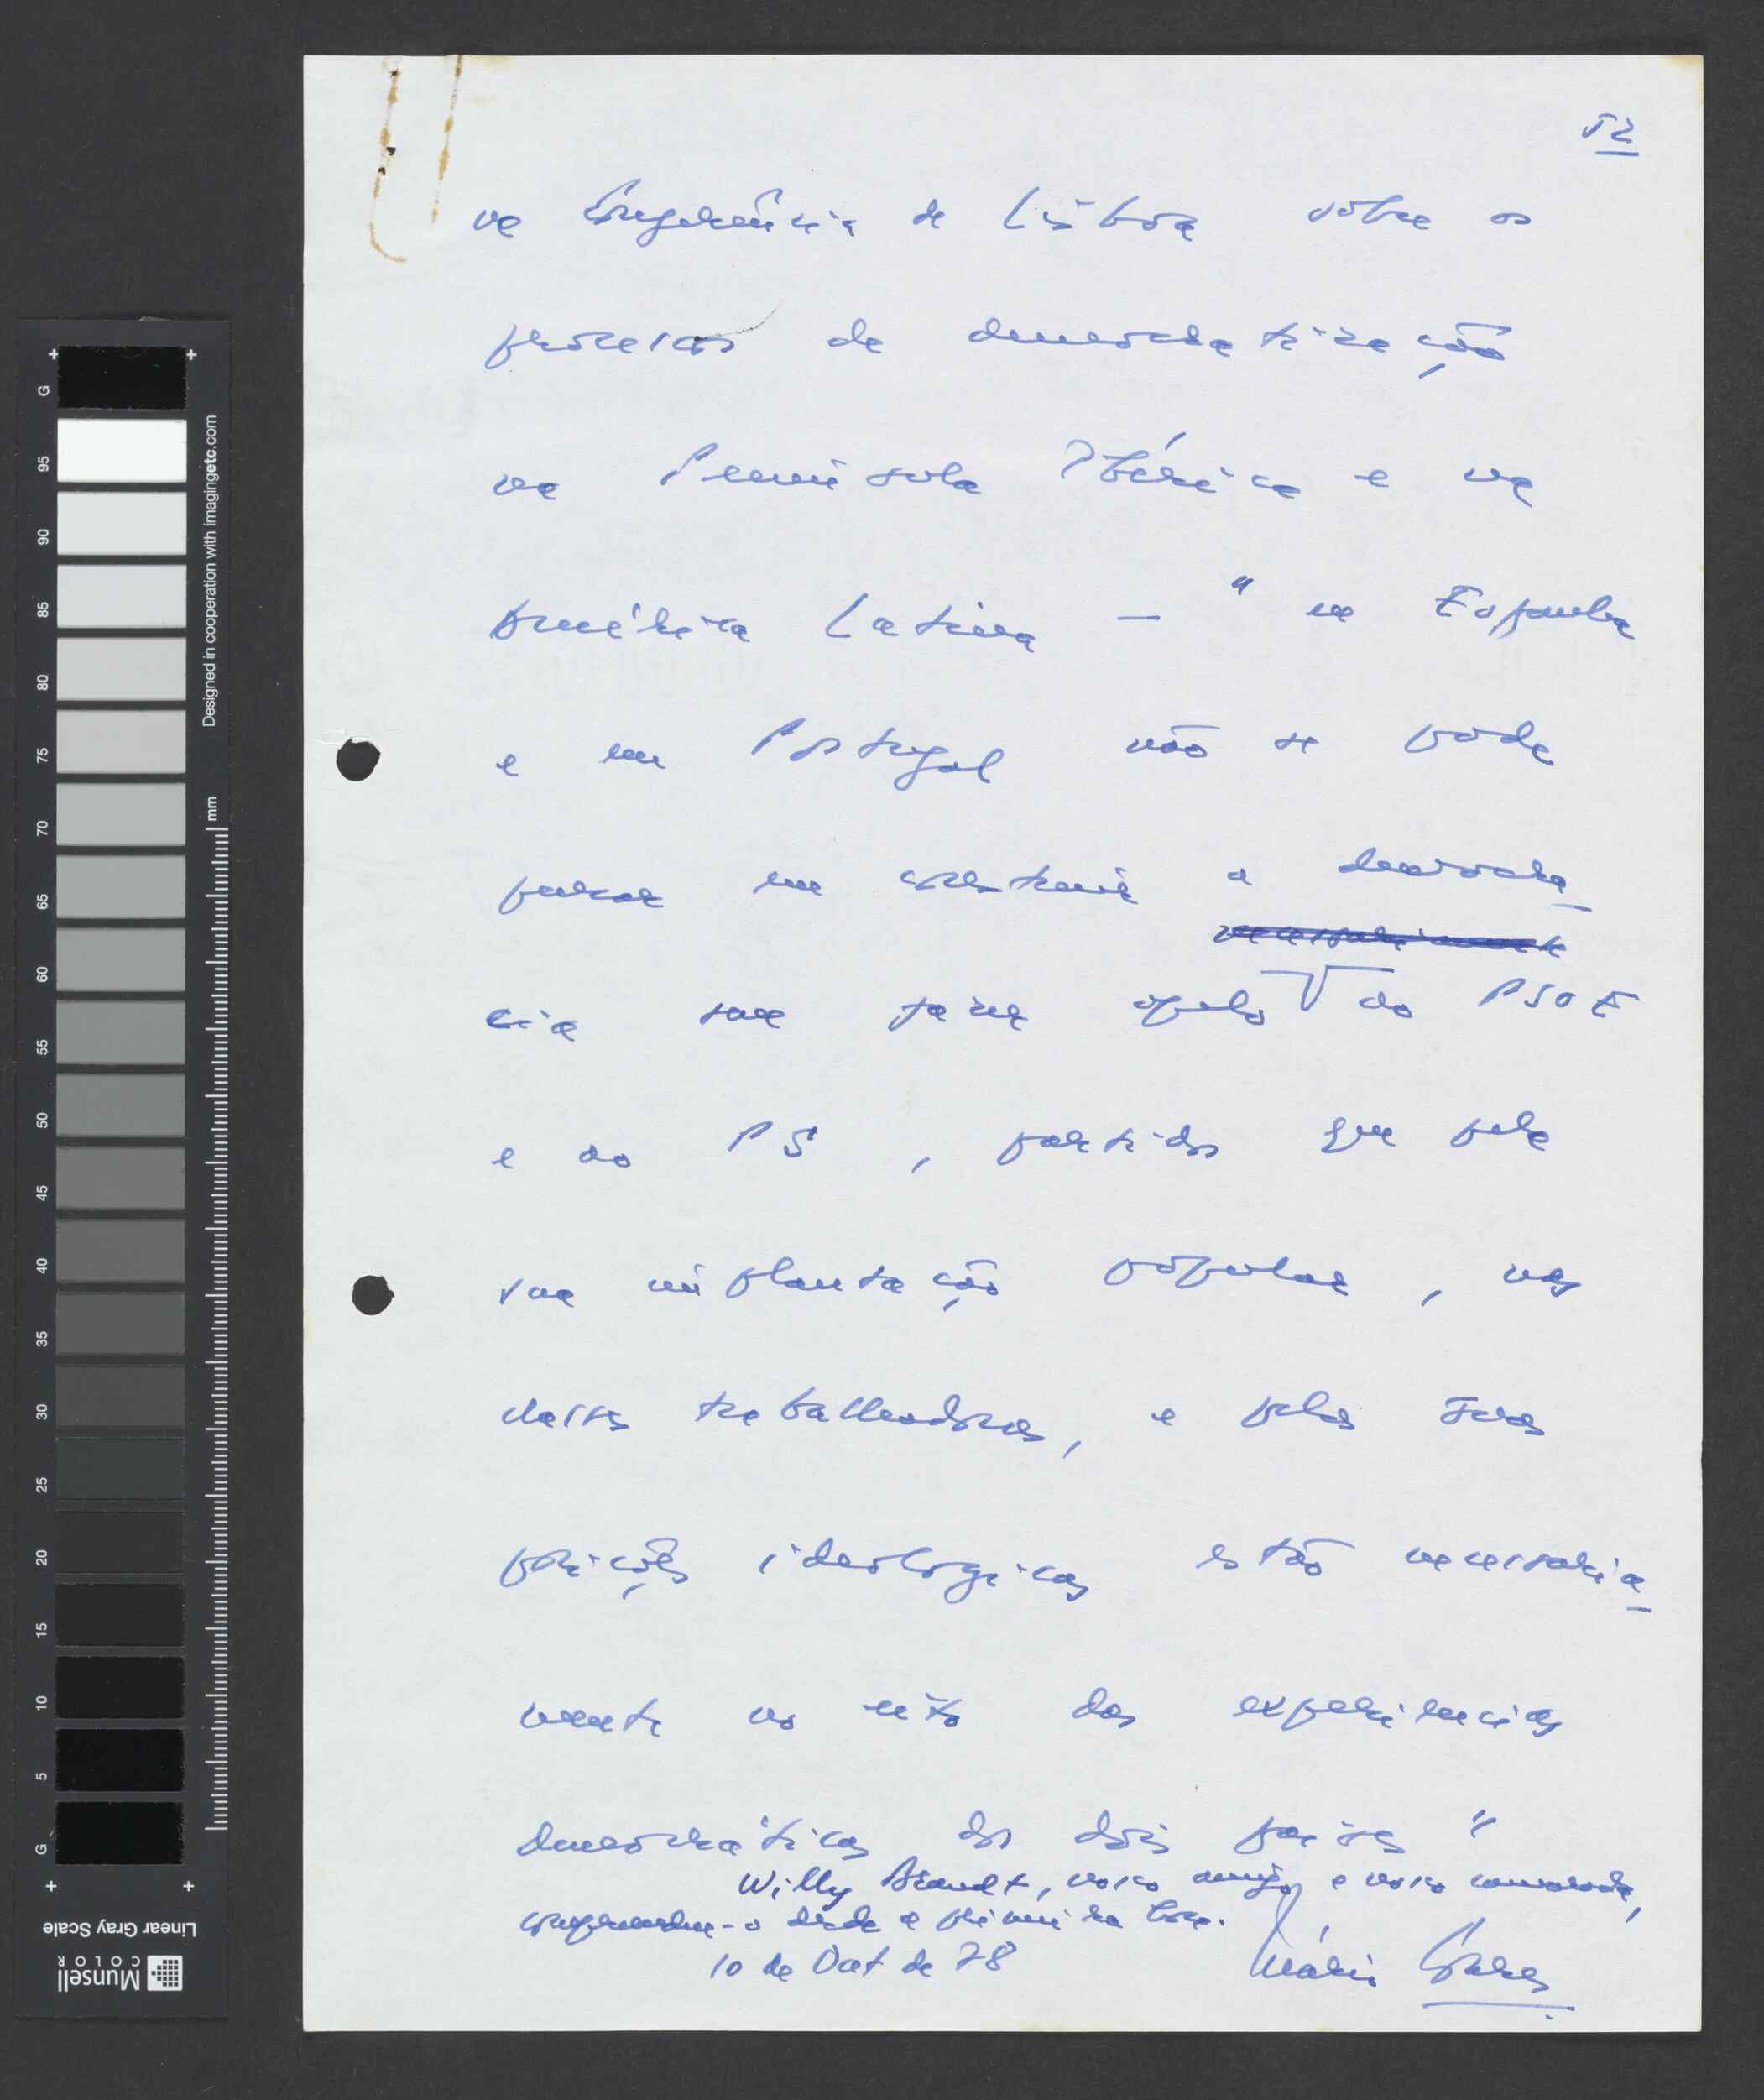 52
na Conferência de Lisboa sobre os
processos de democratização
na Península Ibérica e na
América Latina — " em Espanha
e em Portugal não se pode
pensar em construir a democra
necessariamente
cia sem fazer apelo ao PSOE
e ao PS, partidos que pela
sua implantação popular, nas
classes trabalhadoras, e pelas suas
posições ideologicas estão necessaria
mente no eito das experiencias
democráticas dos dois paises"
Willy Brandt, nosso amigo e nosso camarada,
compreendeu-o desde a primeira hora.
10 de Out de 78 Mário Soares
G 95 90 85 80 75 70 65 60 55 50 45 40 35 30 25 20 15 10 5 G
Designed in cooperation with imagingetc.com
mm
Linear Gray Scale
Munsell
COLOR